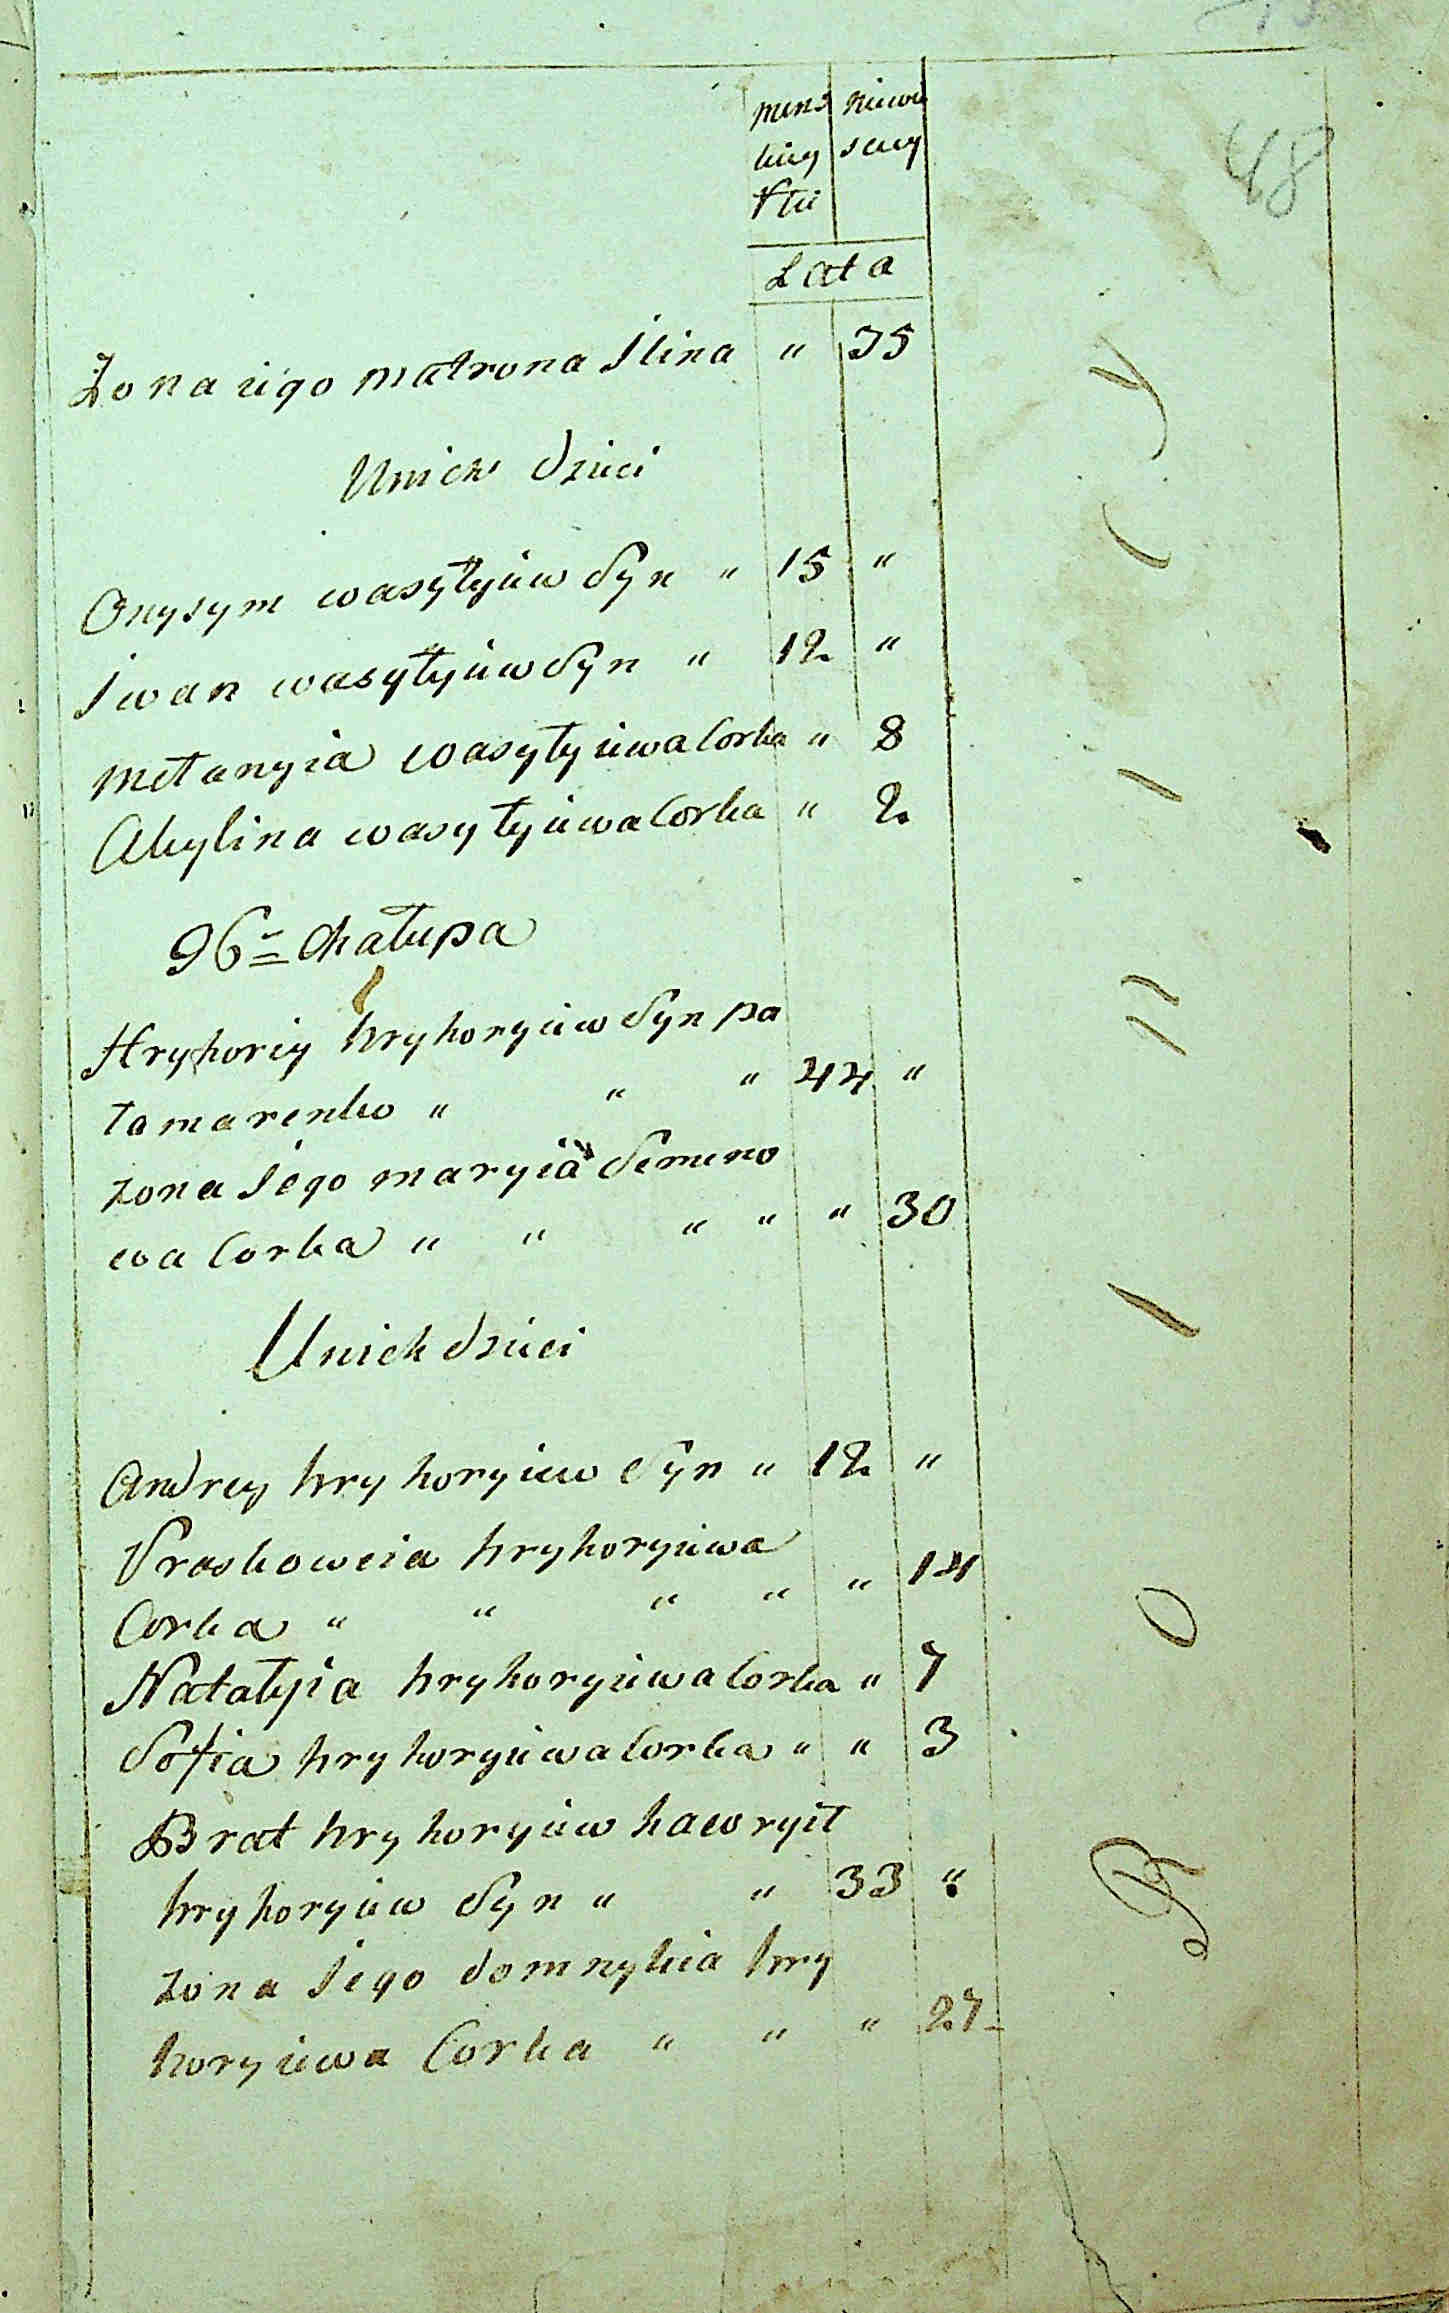 mens niewi
kiey sciey
Płci
Lata
48
Żona iego matrona Ilina " 35
Unich dzieci
Onysym wasyłyiew Syn " 15 "
Iwan wasyłyiew Syn " 12 "
mełanyia wasyłyiewa Corka " 8
Akylina wasyłyiewa Corka " 2
96= Chałupa
Hryhoriy hryhoryiew Syn pa
tamarenko " " " 44 "
żona Iego maryia Semeno
wa Corka " " " " " 30
Unich dzieci
Andrey hryhoryiew Syn " 12 "
Praskoweia hryhoryiewa
Corka " " " " " 14
Natałyia hryhoryiewa Corka " 7
Sofia hryhoryiewa Corka " " 3
Brat hryhoryiew hawryił
hryhoryiew Syn " " 33 "
żona Iego domnykia hry
horyiewa Corka " " " 27